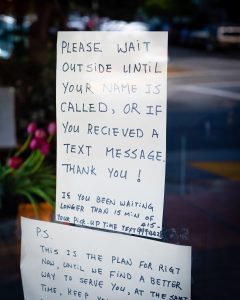 PLEASE WAIT
OUTSIDE UNTIL
YOUR NAME IS
CALLED, OR IF
YOU RECIEVED A
TEXT MESSAGE
THANK YOU !
IF YOU BEEN WAITING
LONGER THAN 15 MIN OF
YOUR PICK-UP TIME TEXT
P.S.
THIS IS THE PLAN FOR RIGT
NOW, UNTIL WE FIND A BETTER
WAY TO SERVE YOU, AT THE SAME
TIME, KEEP